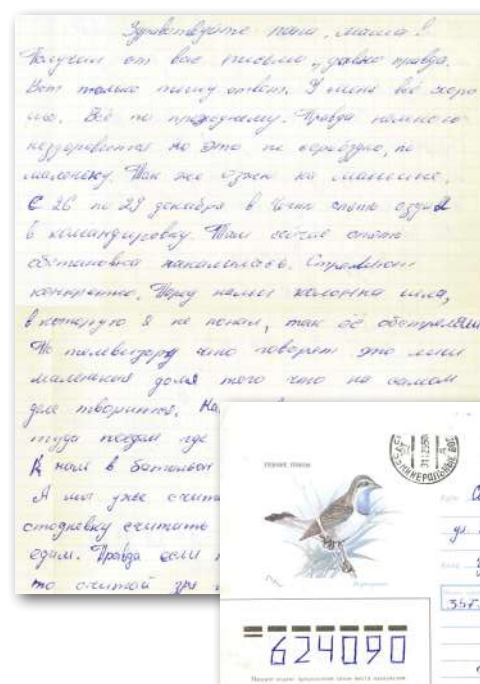 Здравствуйте папа, мама!
Получил от вас письмо, давно правда.
Вот только пишу ответ. У меня всё хоро
шо. Всё по прежднему. Правда немного
нездоровится но это не серьёздно, по
маленьку. Так же езжу на машине.
С 26 по 29 декабря в Чечню опять ездил
в командировку. Там сейчас опять
обстановка накалилась. Стреляют
конкретно. Перед нами колонна шла,
в которую я не попал, так её обстреляли
По телевизору что говорят это лиш
маленькая доля того что на самом
деле творится.
туда поедем где
К нам в батальон
А мы уже счита
стодневку считать
едим. Правда если
то считай зря
31 12 95
МИНЕРАЛЬНЫЕ ВО
ул.
357
624090